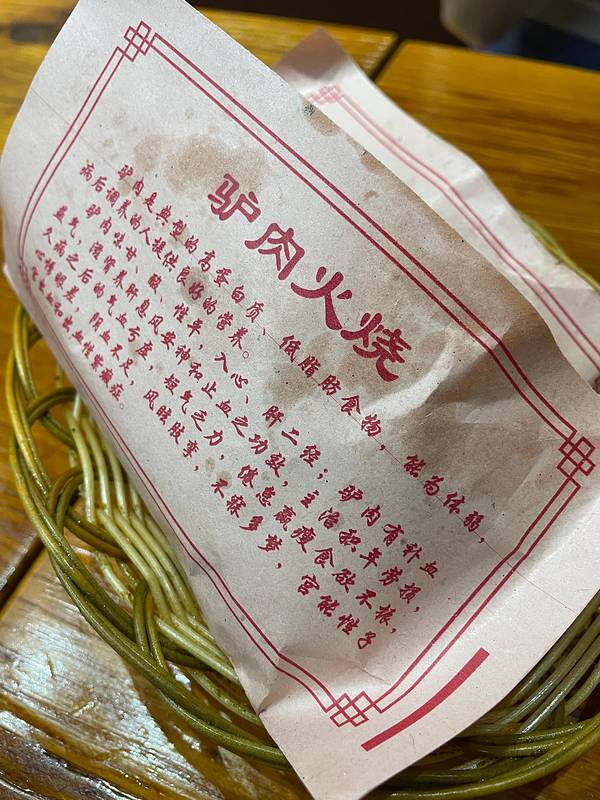 驴肉火烧
驴肉是典型的高蛋白质、低脂肪食物，能为体弱，
病后调养的人提供良好的营养。
驴肉味甘、酸、性平，入心、肝二经；驴肉有补血
益气，滋肾养肝息风安神和止血之功效，主治积年劳损，
久病之后的气血亏虚，短气乏力，倦怠羸瘦食欲不振，
心悸眼差，阴血不足，风眩肢挛，不寐多梦，官能性子
宫出血和出血性紫癜症。